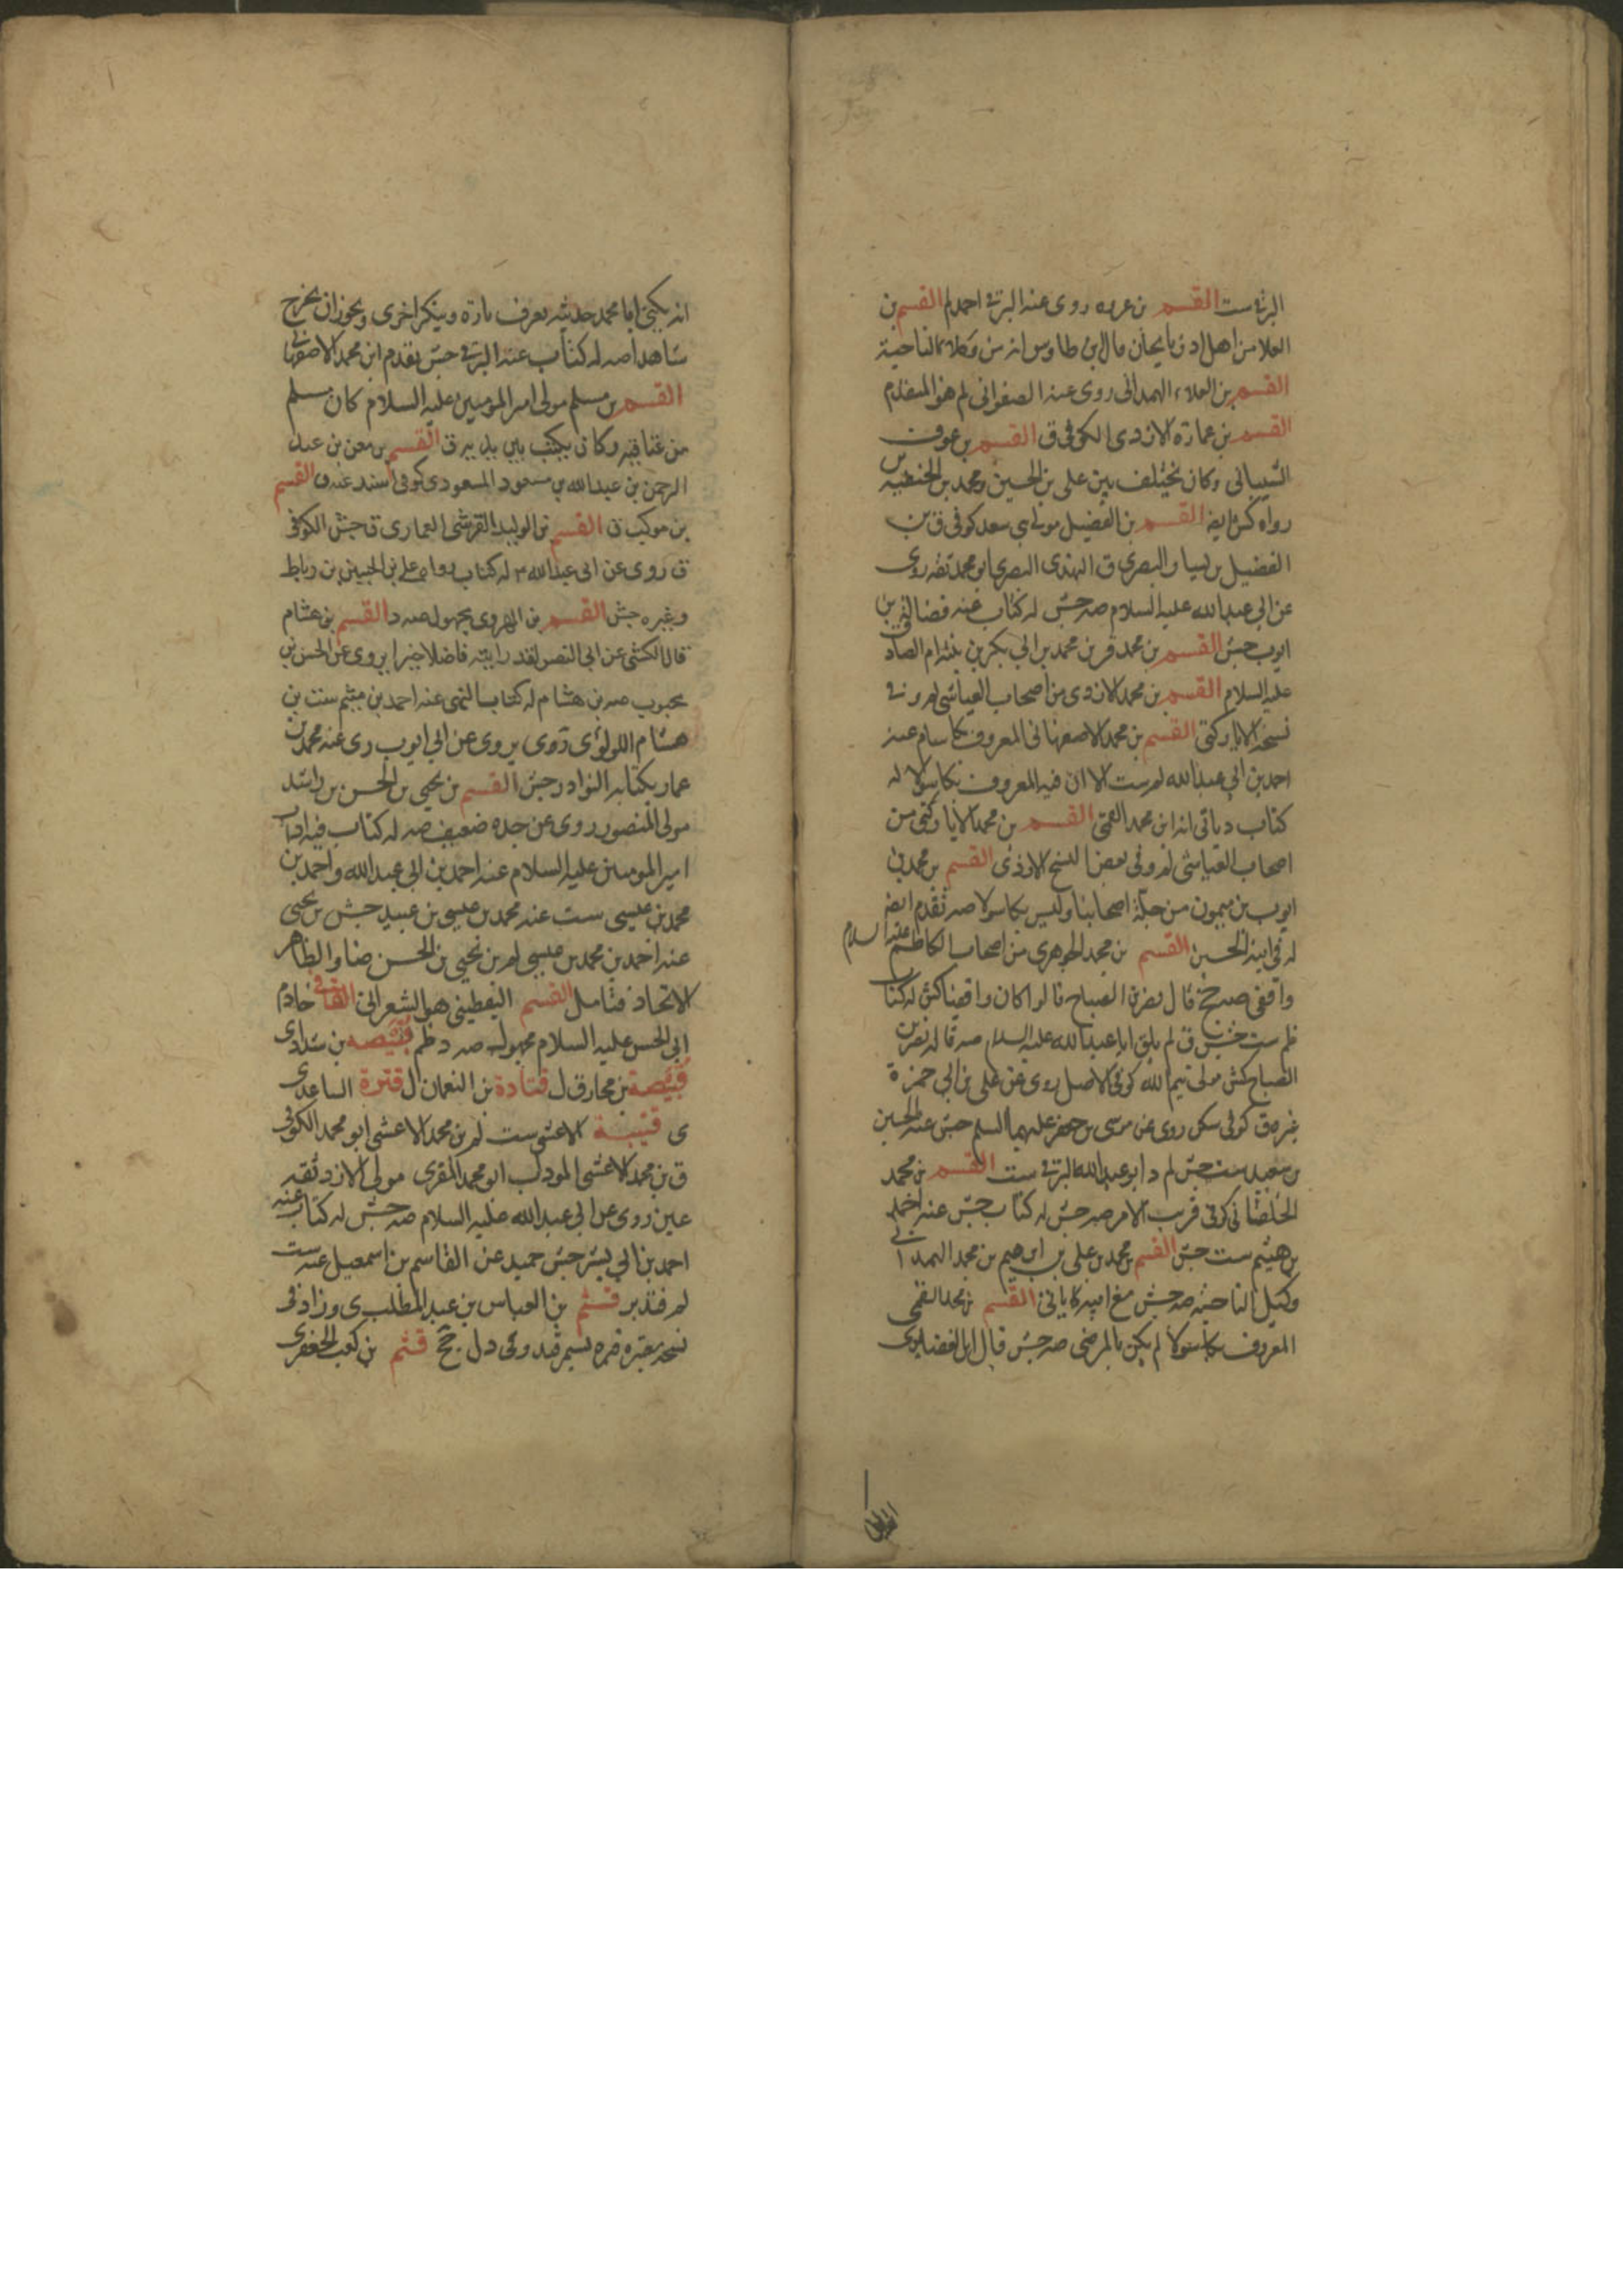 البرقى ست القسم بن عروه روى عنه البرقى احمد لم القسم بن
العلا من اهل اذربايجان قال ابن طاوس انه من وكلاء الناحية
القسم بن العلاء الهمدانى روى عنه الصفوانى لم هو المتقدم
القسم بن عمارة الازدى الكوفى ق القسم بن عوف
الشيبانى وكان يختلف بين على بن الحسين ومحمد بن الحنفية س
رواه كش ايضا القسم بن الفضيل مولى بنى سعد كوفى ق بن
الفضيل بن يسار البصرى ق النهدى البصرى ابو محمد ثقه روى
عن ابى عبدالله عليه السلام صه جش له كتاب عنه فضالة بن
ايوب جش القسم بن محمد بن ابى بكر بن بنته ام الصادق
عليه السلام القسم بن محمد الازدى من اصحاب العياشى لم وفى
نسخة الاباركثى القسم بن محمد الاصفهانى المعروف بكاسام عنه
احمد بن ابى عبدالله لم ست الا ان فيه المعروف بكاسولا له
كتاب وياتى انه ابن محمد القمى القسم بن محمد الاياركثى من
اصحاب العياشى لم وفى بعض النسخ الازدى القسم بن محمد بن
ايوب بن ميمون من جلة اصحابنا وليس بكاسولا صه تقدم ايضا
له فى ابنه الحسين القسم بن محمد الجوهرى من اصحاب الكاظم عليه السلام
واقفى صه جخ قال نصر بن الصباح قالوا كان واقفيا كش له كتاب
ظم ست جش ق لم يلق ابا عبدالله عليه السلام صه قاله نصر بن
الصباح كش مولى تيم الله كوفى الاصل روى عن على بن ابى حمزة
غيره ق كوفى سكن روى عن موسى بن جعفر عليهما السلم جش عنه الحسين
بن سعيد ست جش لم د ابو عبدالله البرقى ست القسم بن محمد
الخلقانى كوفى قريب الامر صه جش له كتاب جش عنه احمد
بن هيثم ست جش القسم بن محمد بن على بن ابرهيم بن محمد الهمدانى
وكيل الناحية صه جش مع ابيه كما ياتى القسم بن محمد القمى
المعروف بكاسولا لم يكن بالمرضى صه جش قال ابن الغضايرى
انه يكنى ابا محمد حديثه يعرف تارة وينكر اخرى ويجوز ان يخرج
شاهدا صه له كتاب عنه البرقى جش تقدم ابن محمد الاصفهانى
القسم بن مسلم مولى امير المومنين عليه السلام كان مسلم
من عتاقيه وكان يكتب بين يديه ق القسم بن معن بن عبد
الرحمن بن عبدالله بن مسعود المسعودى كوفى اسند عنه ق القسم
بن موكب ق القسم بن الوليد القرشى العمارى ق جش الكوفى
ق روى عن ابى عبدالله ع له كتاب رواه على بن الحسن بن رباط
وغيره جش القسم بن الهروى مجهول صه د القسم بن هشام
قال الكشى عن ابى النصر لقد رايته فاضلا خيرا يروى عن الحسن بن
محبوب صه بن هشام له كتاب التمى عنه احمد بن ميثم ست بن
هشام اللولؤى روى يروى عن ابى ايوب روى عنه محمد بن
عمار بكتابه النوادر جش القسم بن يحيى بن الحسن بن راشد
مولى المنصور روى عن جده ضعيف صه له كتاب فيه اداب
امير المومنين عليه السلام عنه احمد بن ابى عبدالله واحمد بن
محمد بن عيسى ست عنه محمد بن عيسى بن عبيد جش بن يحيى
عنه احمد بن محمد بن عيسى لم بن يحيى بن الحسن ضا والظاهر
الاتحاد فتامل القسم اليقطينى هو الشعرانى القانى خادم
ابى الحسن عليه السلام مجهول صه د ظم قبيصه بن شداد ى
قبيصة بن مخارق ل قتادة بن النعمان ل قترة الساعدى
ى قتيبة الاعشى ست لم بن محمد الاعشى ابو محمد الكوفى
ق بن محمد الاعشى المودب ابو محمد المقرى مولى الازد ثقه
عين روى عن ابى عبدالله عليه السلام صه جش له كتاب عنه
احمد بن ابى بشر جش حميد عن القاسم بن اسمعيل عنه ست
لم فتدبر قثم بن العباس بن عبد المطلب ى وزاد فى
نسخة معتبرة قبره بسمرقند وفى د ل جخ قثم بن كعب الجعفرى